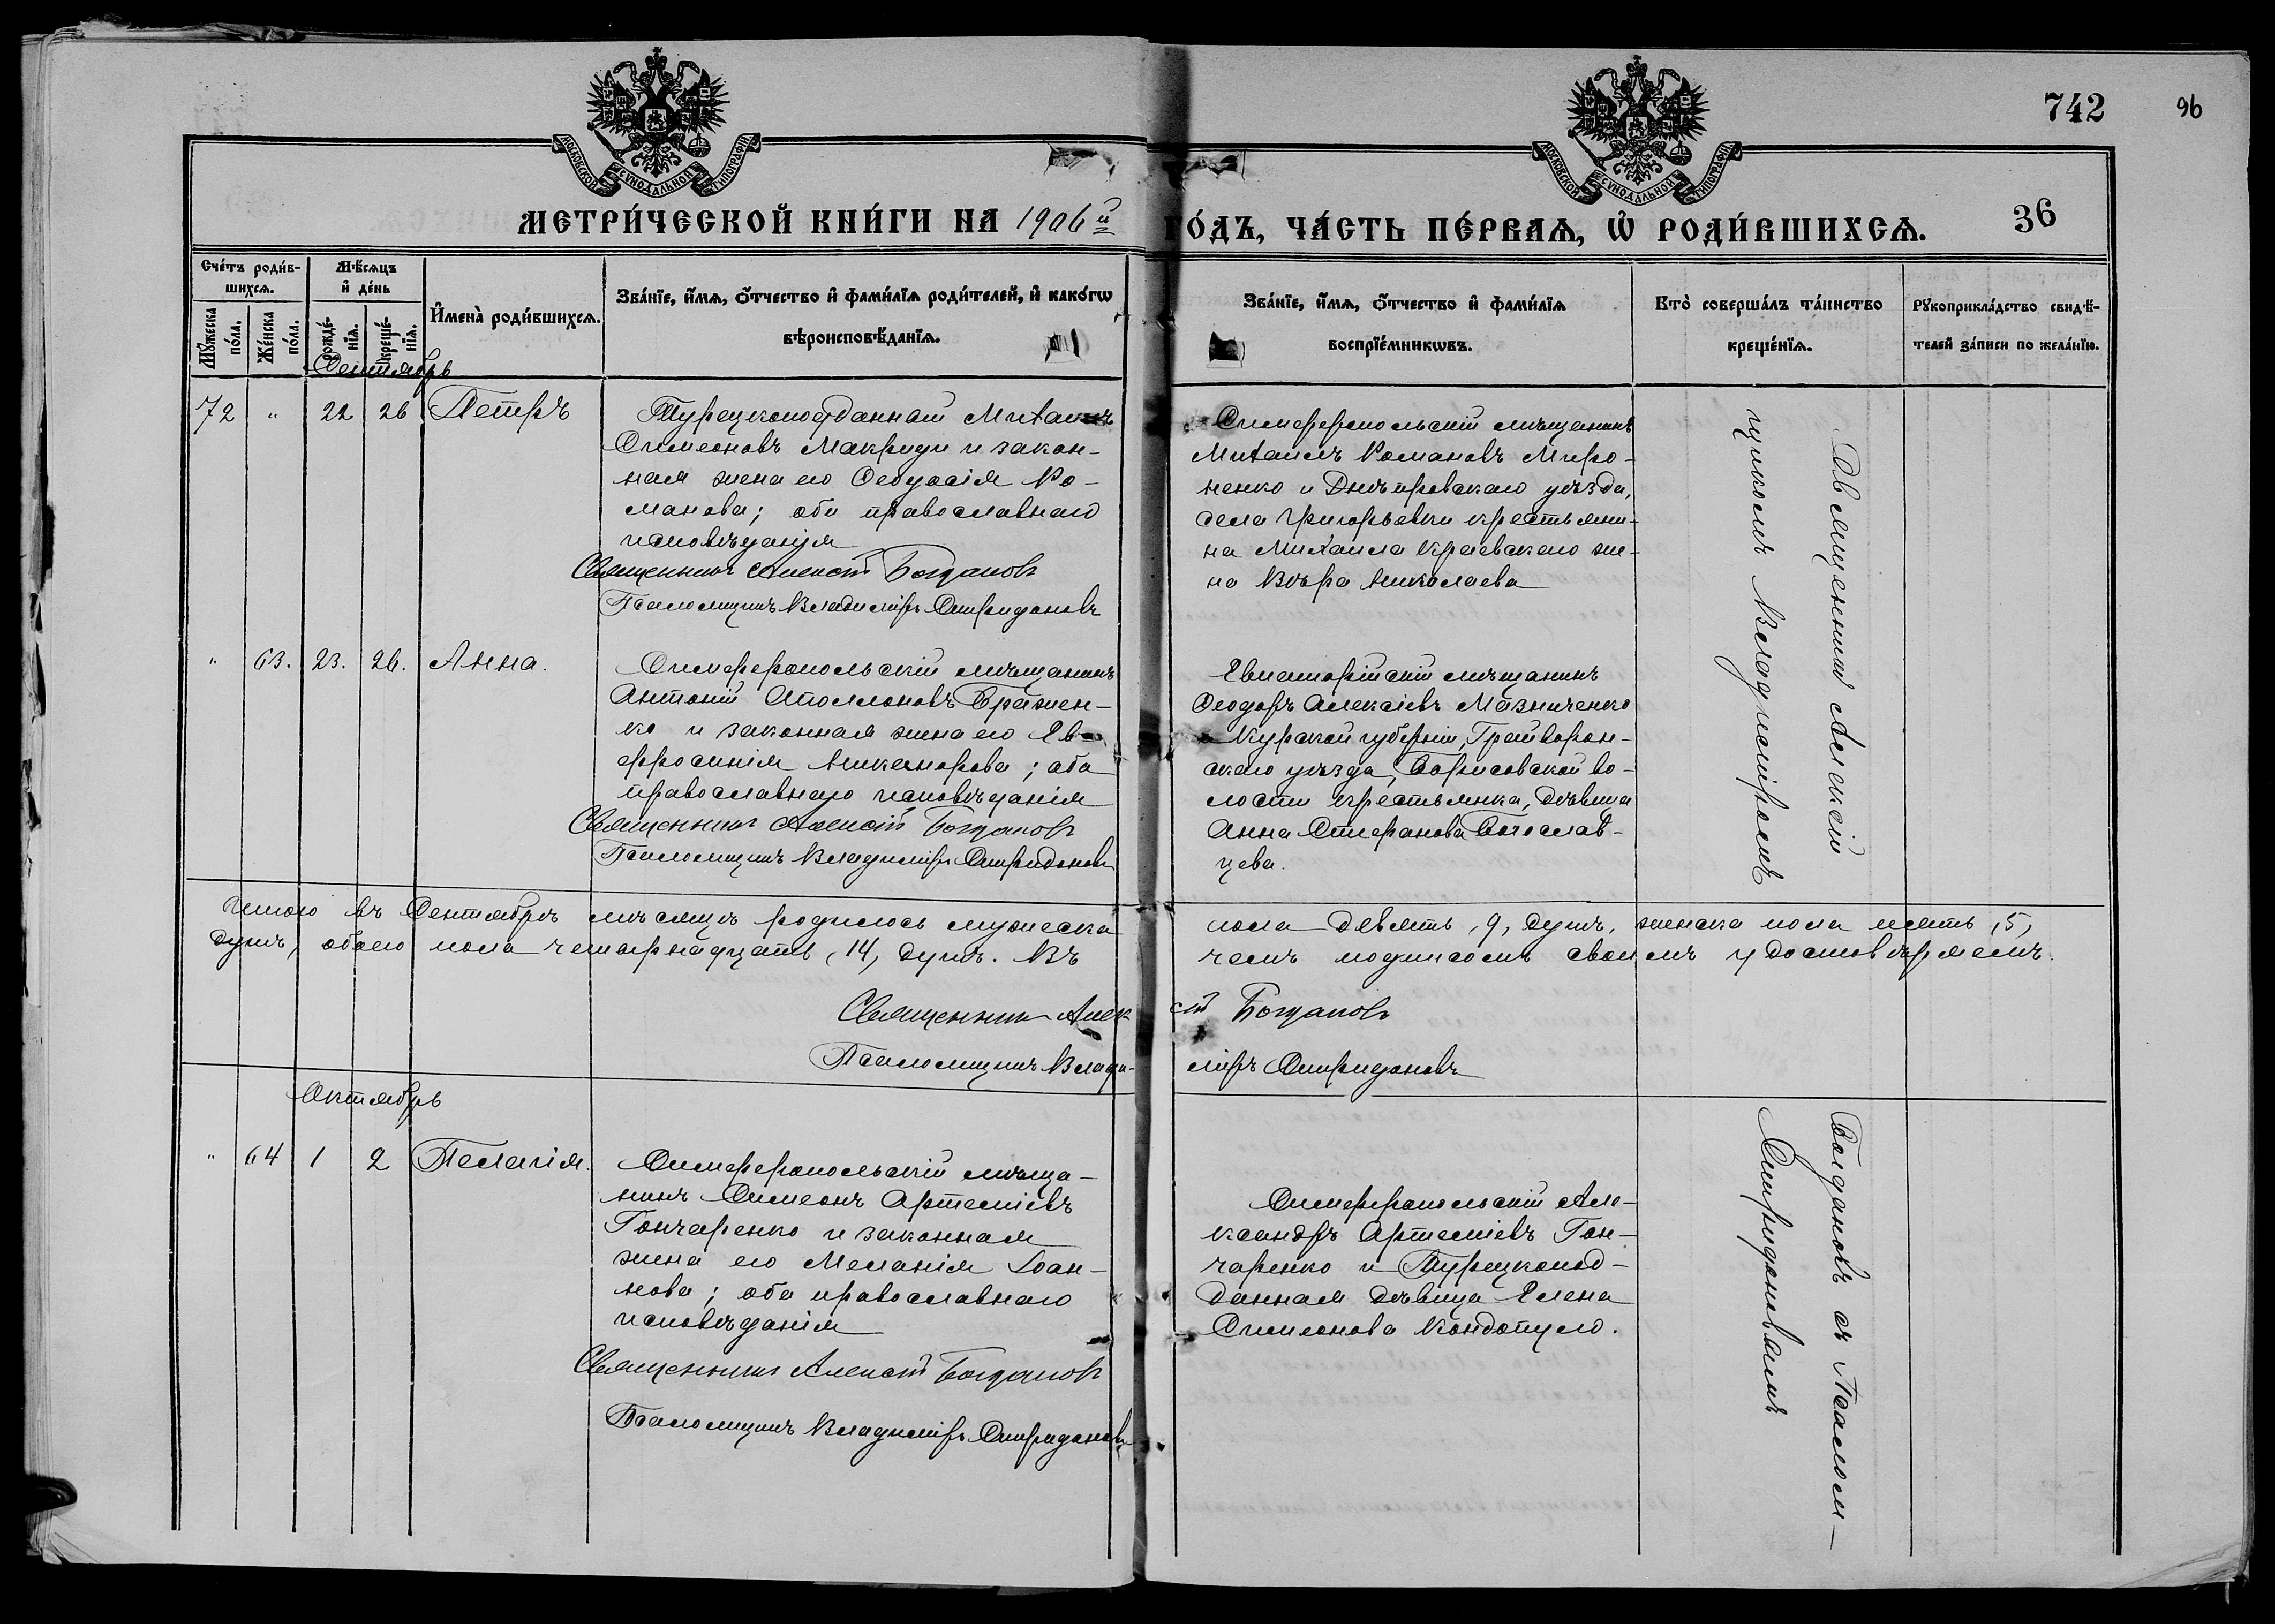 742
96
МОСКОВСКОЙ СУНОДАЛЬНОЙ ТИПОГРАФІИ
МОСКОВСКОЙ СУНОДАЛЬНОЙ ТИПОГРАФІИ
МЕТРИ́ЧЕСКОЙ КНИ́ГИ НА 1906й ГО́ДЪ, ЧА́СТЬ ПЕ́РВАЯ, Ѡ҆ РОДИ́ВШИХСЯ.
36
Сче́тъ роди́в-
шихся.
Мꙋ́жеска
по́ла.
Же́нска
по́ла.
Мѣ́сяцъ
и҆ де́нь
рожде́-
нїя.
креще́-
нїя.
И҆мена̀ роди́вшихся.
Зва́нїе, и҆́мя, ѻ҆́тчество и҆ фами́лїя роди́телей, и҆ како́гѡ
вѣроисповѣ́данїя.
Зва́нїе, и҆́мя, ѻ҆́тчество и҆ фами́лїя
воспрїе́мникѡвъ.
Кто̀ соверша́лъ та́инство
креще́нїя.
Рꙋкоприкла́дство свидѣ́-
телей за́писи по жела́нїю.
Сентябрь
72 " 22 26 Петръ
Турецкоподданный Михаилъ
Симеоновъ Макриди и закон-
ная жена его Ѳеодосія Ро-
манова; оба православнаго
исповѣданія
Священникъ Алексій Богдановъ
Псаломщикъ Владиміръ Спиридоновъ
Симферопольскій мѣщанинъ
Михаилъ Романовъ Миро-
ненко и Днѣпровскаго уѣзда,
села Григорьевки крестьяни-
на Михаила Краевскаго же-
на Вѣра Николаева
" 63. 23. 26. Анна.
Симферопольскій мѣщанинъ
Антоній Аполлоновъ Бражен-
ко и законная жена его Ев-
фросинія Никанорова; оба
православнаго исповѣданія
Священникъ Алексій Богдановъ
Псаломщикъ Владиміръ Спиридоновъ
Евпаторійскій мѣщанинъ
Ѳеодоръ Алексіевъ Мазниченко
и Курской губерніи, Грайворон-
скаго уѣзда, Борисовской во-
лости крестьянка, дѣвица
Анна Стефанова Богослав-
цева.
Священникъ Алексій
Богдановъ съ Псалом-
щикомъ Владиміромъ
Спиридоновымъ
Итого въ Сентябрѣ мѣсяцѣ родилось мужеска пола девять, 9, душъ, женска пола пять, 5,
душъ, обоего пола четырнадцать, 14, душъ. Въ чемъ подписомъ своимъ удостовѣряемъ.
Священникъ Алексій Богдановъ
Псаломщикъ Владиміръ Спиридоновъ
Октябрь
" 64 1 2 Пелагія.
Симферопольскій мѣща-
нинъ Симеонъ Артеміевъ
Гончаренко и законная
жена его Меланія Іоан-
нова; оба православнаго
исповѣданія
Священникъ Алексій Богдановъ
Псаломщикъ Владиміръ Спиридоновъ
Симферопольскій Але-
ксандръ Артеміевъ Гон-
чаренко и Турецкопод-
данная дѣвица Елена
Симеонова Кондопуло.